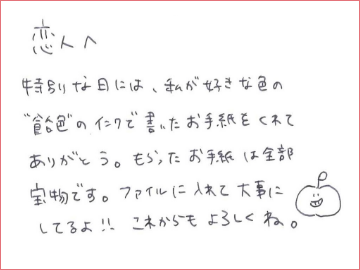 恋人へ
特別な日には、私が好きな色の
"飴色"のインクで書いたお手紙をくれて
ありがとう。もらったお手紙は全部
宝物です。ファイルに入れて大事に
してるよ!! これからもよろしくね。